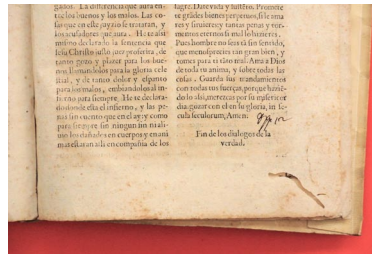 gados. La differencia que aura en-
tre los buenos y los malos. Las co-
sas que en este juyzio se trataran, y
los acusadores que aura. He te assi
mismo declarado la sentencia que
Iesu Christo justo juez proferira, de
tanto gozo y plazer para los bue-
nos llamandolos para la gloria cele
stial, y de tanto dolor y espanto
para los malos, embiandolos al in-
fierno para siempre. He te declara-
do donde esta el infierno, y las pe-
nas sin cuento que en el ay: y como
para siempre sin ningun fin ni ali-
uio los dañados en cuerpos y en ani
mas estaran alla en compañia de los
lagre. Date vida y
grandes bienes perpetuos, si le ama
res y siruieres: y tantas penas y tor-
mentos eternos si mal lo hizieres.
Pues hombre no seas tã sin sentido,
que menosprecies tan gran bien, y
tomes para ti tan mal. Ama a Dios
de toda tu anima, y sobre todas las
cosas. Guarda sus mandamientos
con todas tus fuerças, porque hazié-
do lo assi, merezcas por su misericor
dia, gozar con el en su gloria, in se-
cula seculorum, Amen.
Fin de los dialogos de la
verdad.